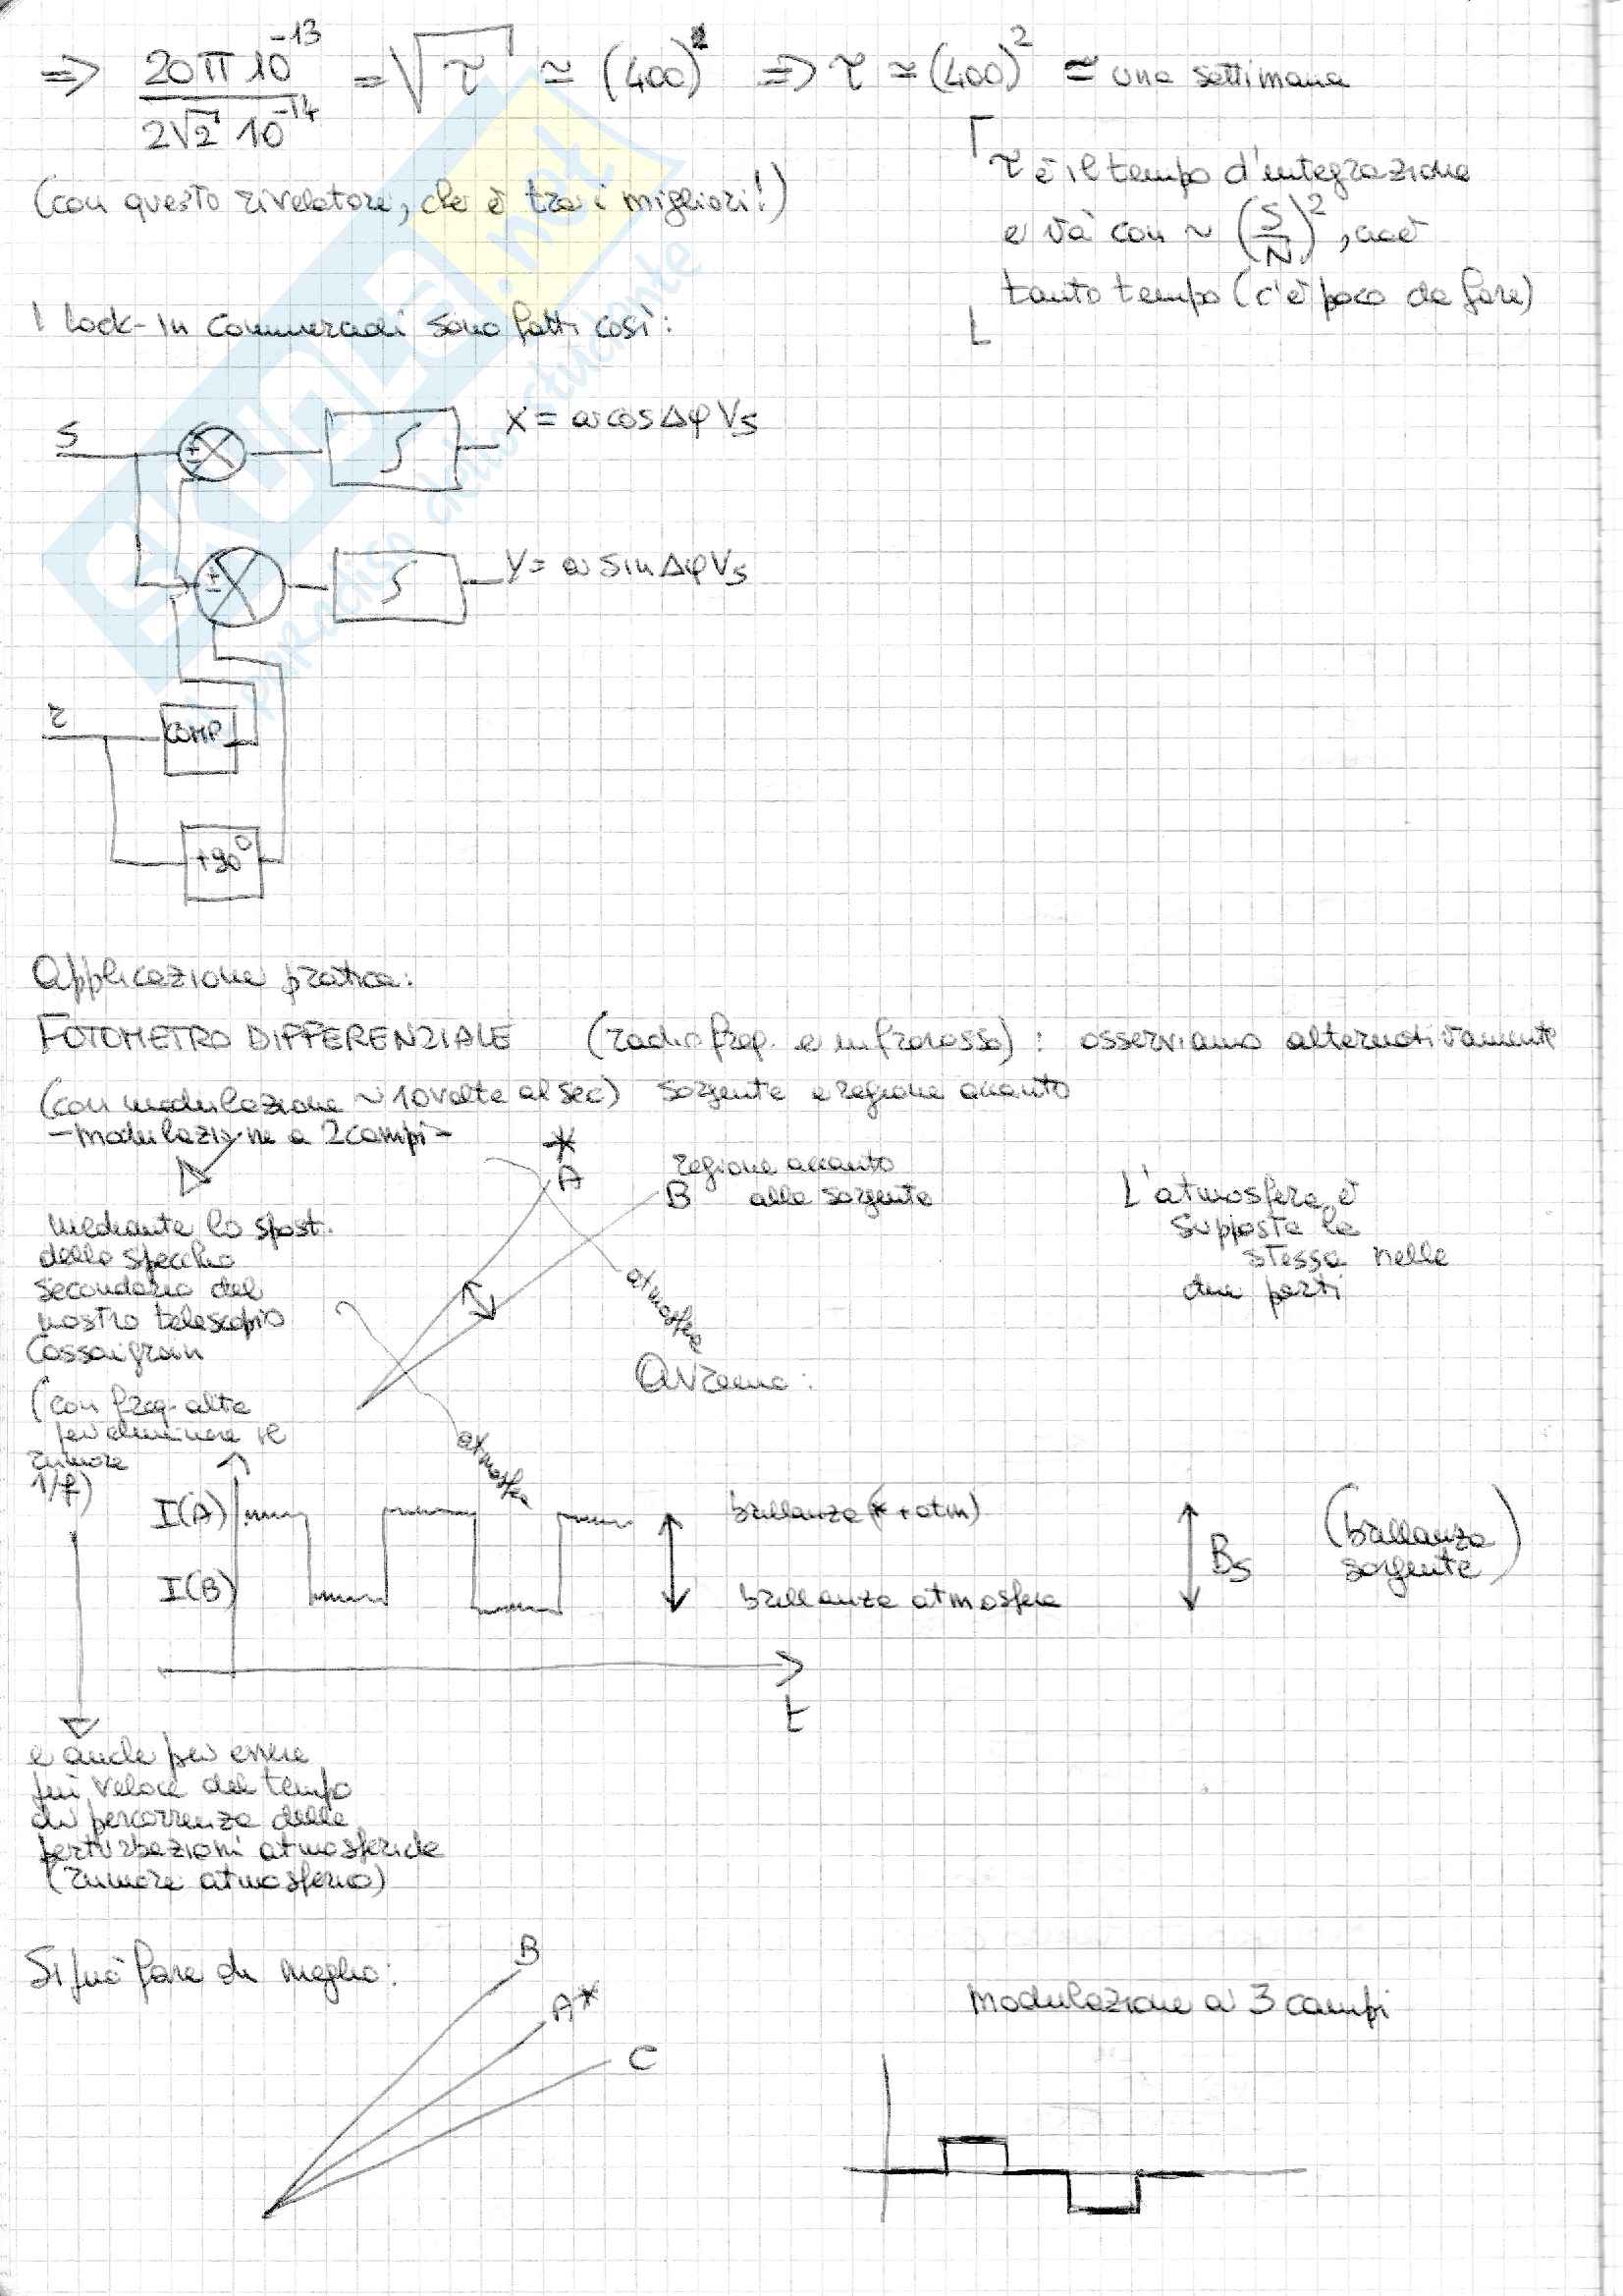 => 20π 10^-13 / 2√2 10^-14 = √τ ≃ (400) => τ ≃ (400)^2 ≃ una settimana
(con questo rivelatore, che è tra i migliori!)
τ è il tempo d'integrazione
e và con ~ (S/N)^2, cioè
tanto tempo (c'è poco da fare)
I Lock-In commerciali sono fatti così:
S
±
∫
X = a cos Δφ Vs
±
∫
Y = a sin Δφ Vs
r
COMP
+90°
Applicazione pratica:
FOTOMETRO DIFFERENZIALE (radio freq. e infrarosso): osserviamo alternativamente
(con modulazione ~10 volte al sec) sorgente e regione accanto
-modulazione a 2 campi-
*
A
B
regione accanto
alla sorgente
L'atmosfera è
supposta la
stessa nelle
due parti
mediante lo spost.
dello specchio
secondario del
nostro telescopio
Cassaigrain
(con freq. alta
per eliminare il
rumore
1/f)
atmosfera
atmosfera
Avremo:
I(A)
I(B)
brillanza (* + atm)
brillanza atmosfera
Bs
(brillanza
sorgente)
t
e anche per essere
più veloce del tempo
di percorrenza delle
perturbazioni atmosferiche
(rumore atmosferico)
Si può fare di meglio:
B
A*
C
Modulazione a 3 campi
SKUOLA.net